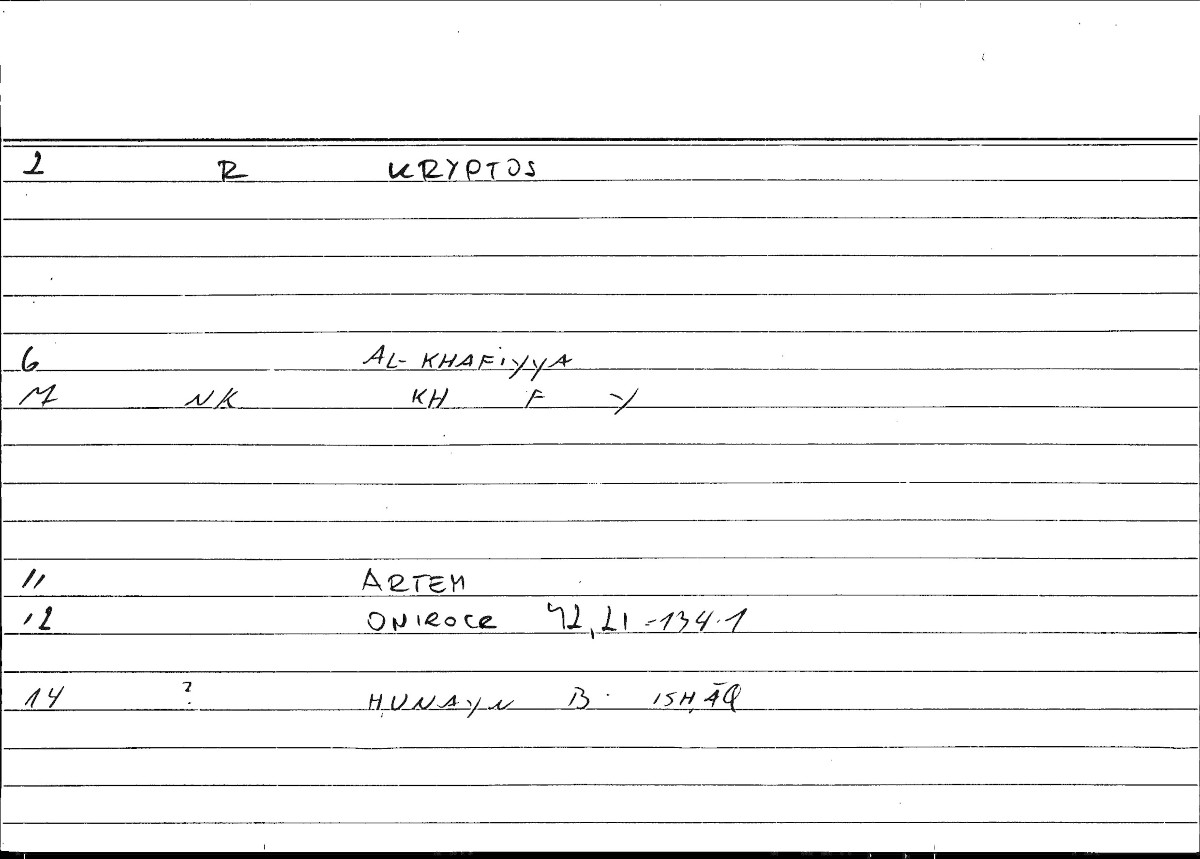 2 R KRYPTOS
6 AL-KHAFIYYA
7 NK KH F Y
11 ARTEM
12 ONIROCR 42,21-134.1
14 ? ḤUNAYN B. ISḤĀQ